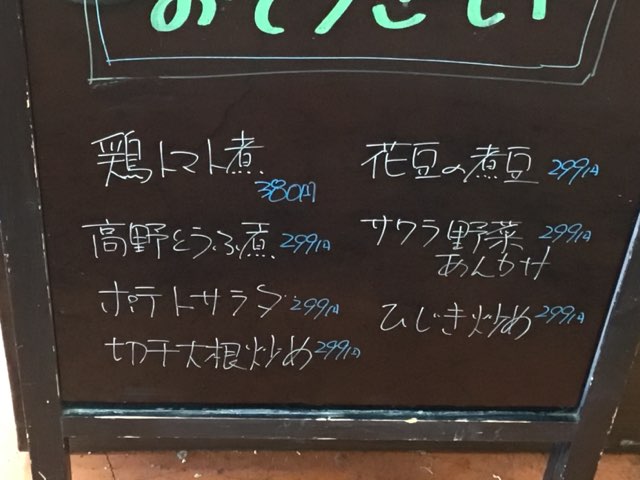 おそうざい
鶏トマト煮
380円
高野とうふ煮 299円
ポテトサラダ 299円
切干大根炒め 299円
花豆の煮豆 299円
サワラ野菜 299円
あんかけ
ひじき炒め 299円